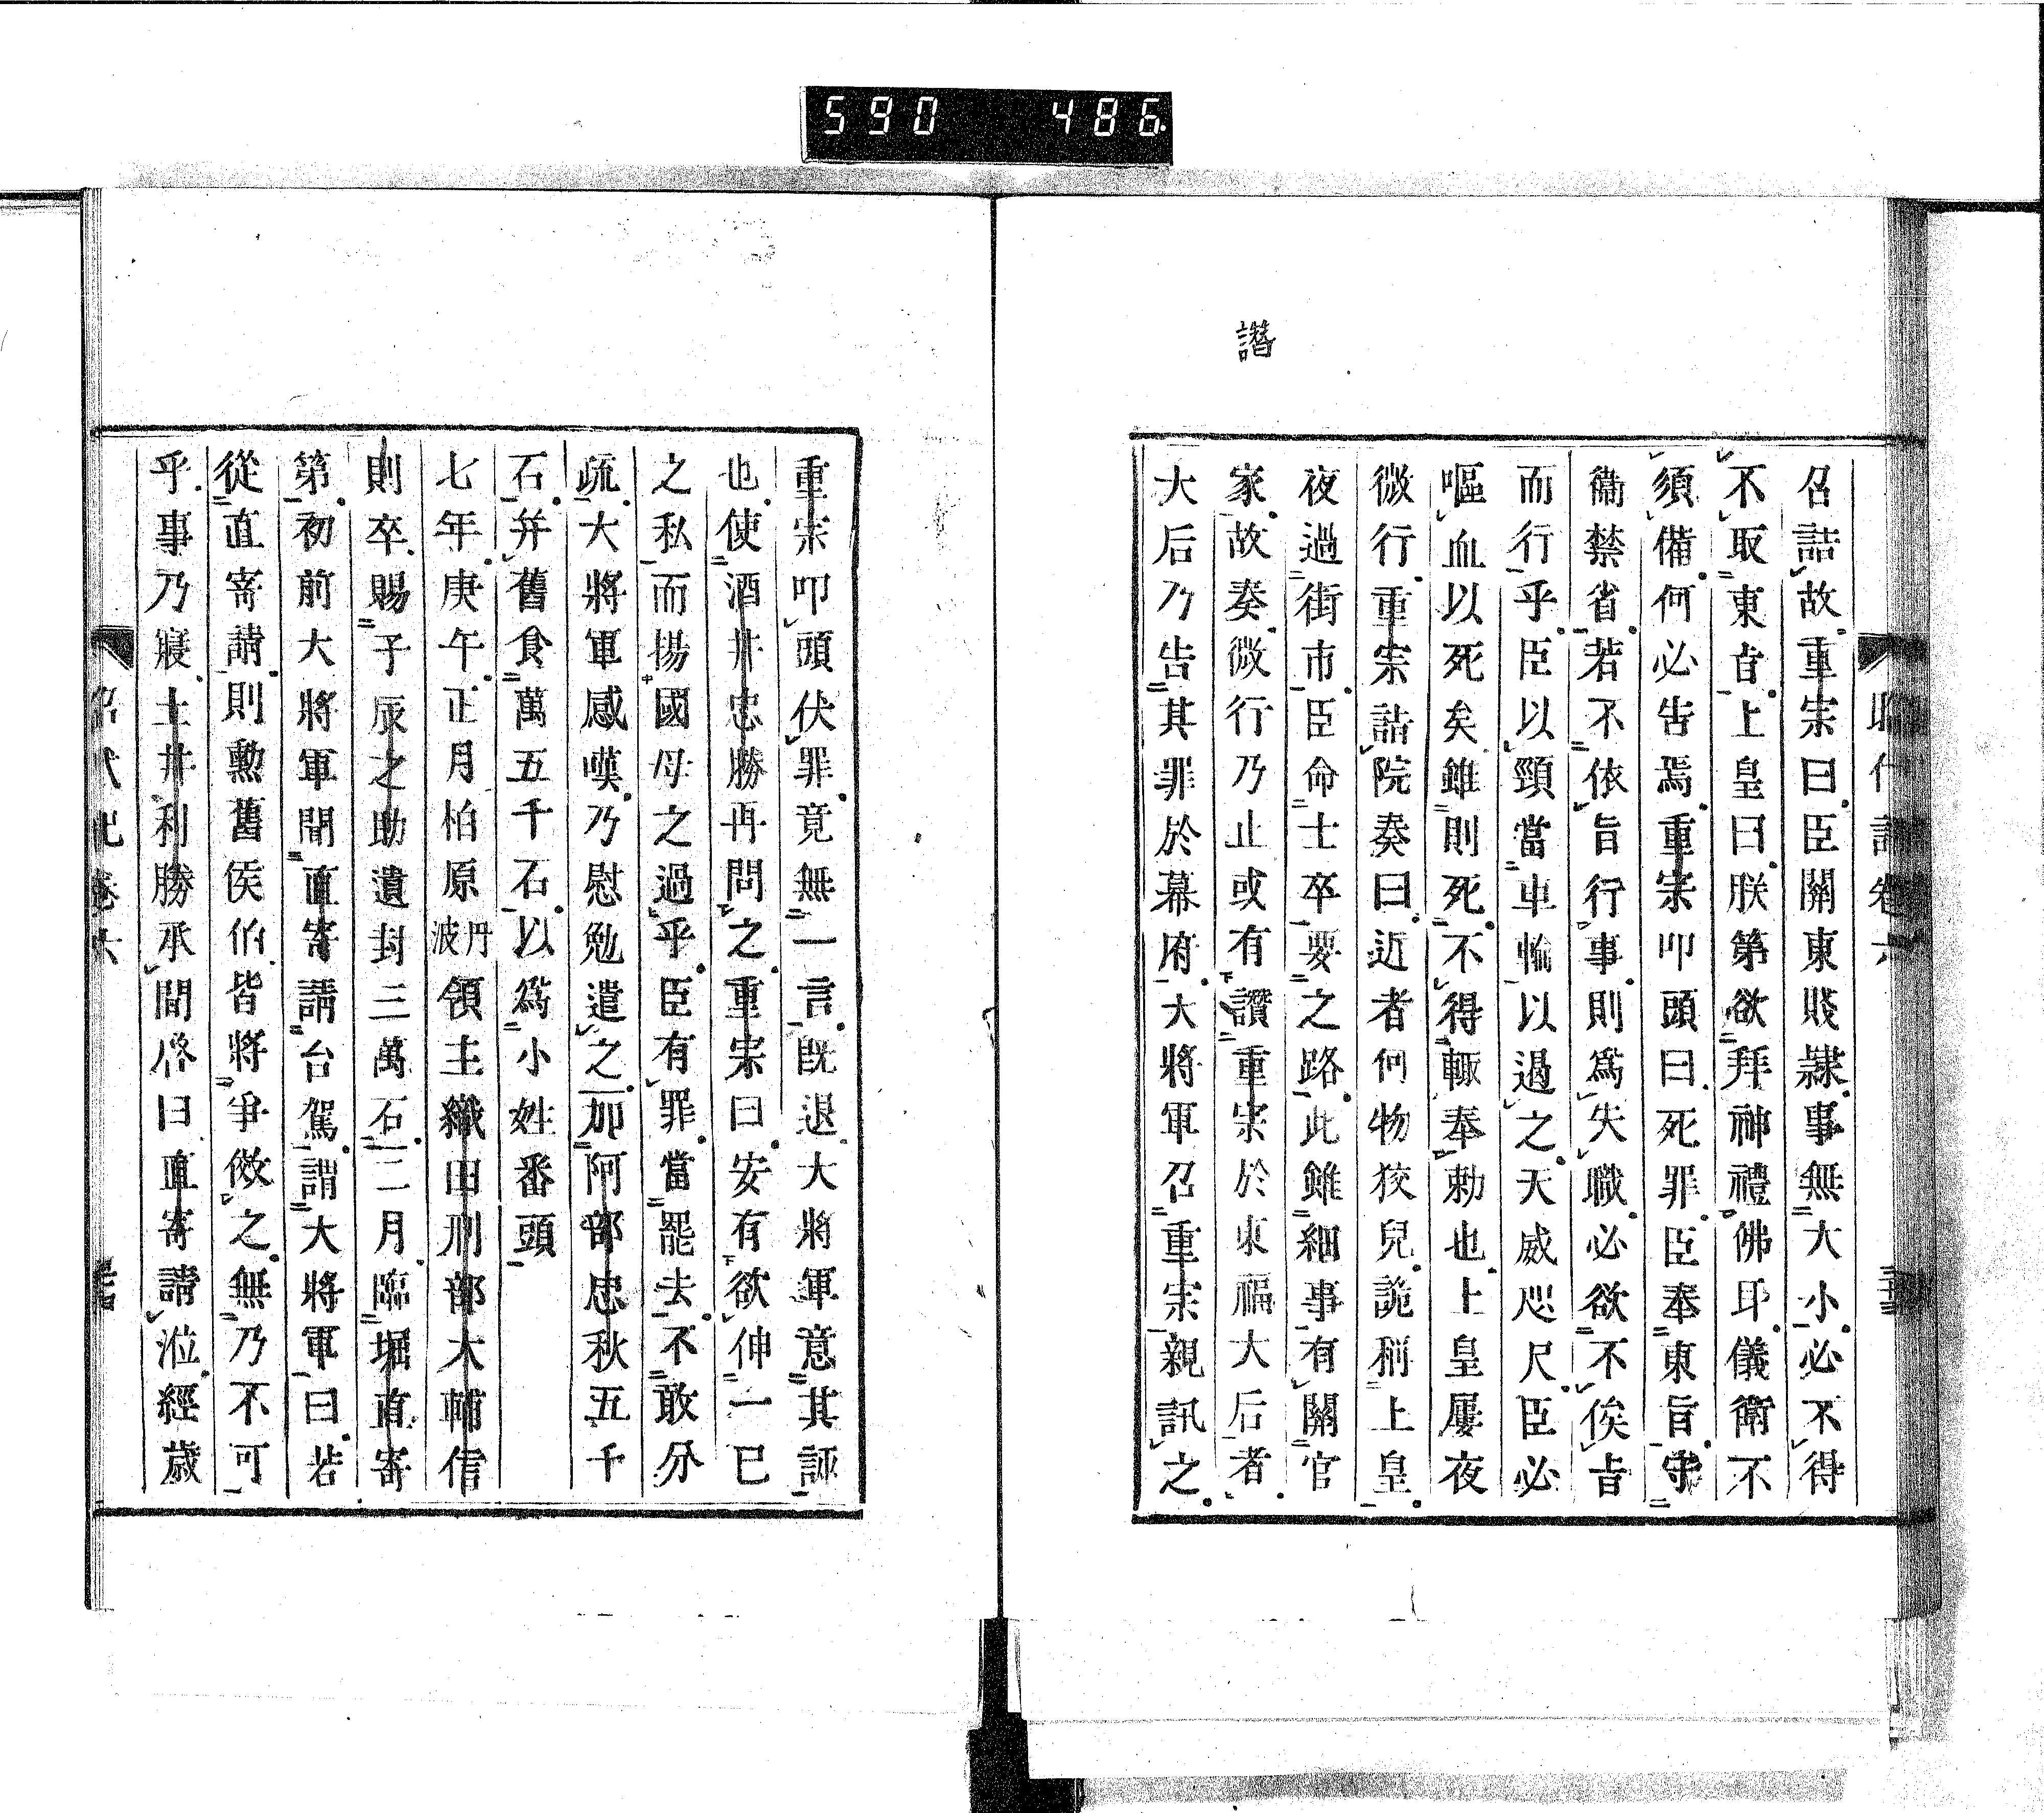 590 486
譖
昭代記卷六
召詰故重宗曰臣關東賤隸事無大小必不得
不取東旨上皇曰朕第欲拜神禮佛耳儀衛不
須備何必告焉重宗叩頭曰死罪臣奉東旨守
衞禁省若不依旨行事則爲失職必欲不俟旨
而行乎臣以頸當車輪以過之天威咫尺臣必
嘔血以死矣雖則死不得輙奉勅也上皇屢夜
微行重宗詰院奏曰近者何物狡兒詭稱上皇
夜過街市臣命士卒要之路此雖細事有關官
家故奏微行乃止或有讚重宗於東福大后者
大后乃告其罪於幕府大將軍召重宗親訊之
重宗叩頭伏罪竟無一言既退大將軍意其誣
也使酒井忠勝再問之重宗曰安有欲伸一已
之私而揚國母之過乎臣有罪當罷去不敢分
疏大將軍感嘆乃慰勉遣之加阿部忠秋五千
石并舊食萬五千石以爲小姓番頭
七年庚午正月柏原丹波領主織田刑部大輔信
則卒賜子辰之助遺封三萬石二月臨堀直寄
第初前大將軍聞直寄請台駕謂大將軍曰若
從直寄請則勳舊侯伯皆將爭傚之無乃不可
乎事乃寢土井利勝承間啓曰直寄請涖經歲
昭代記卷六